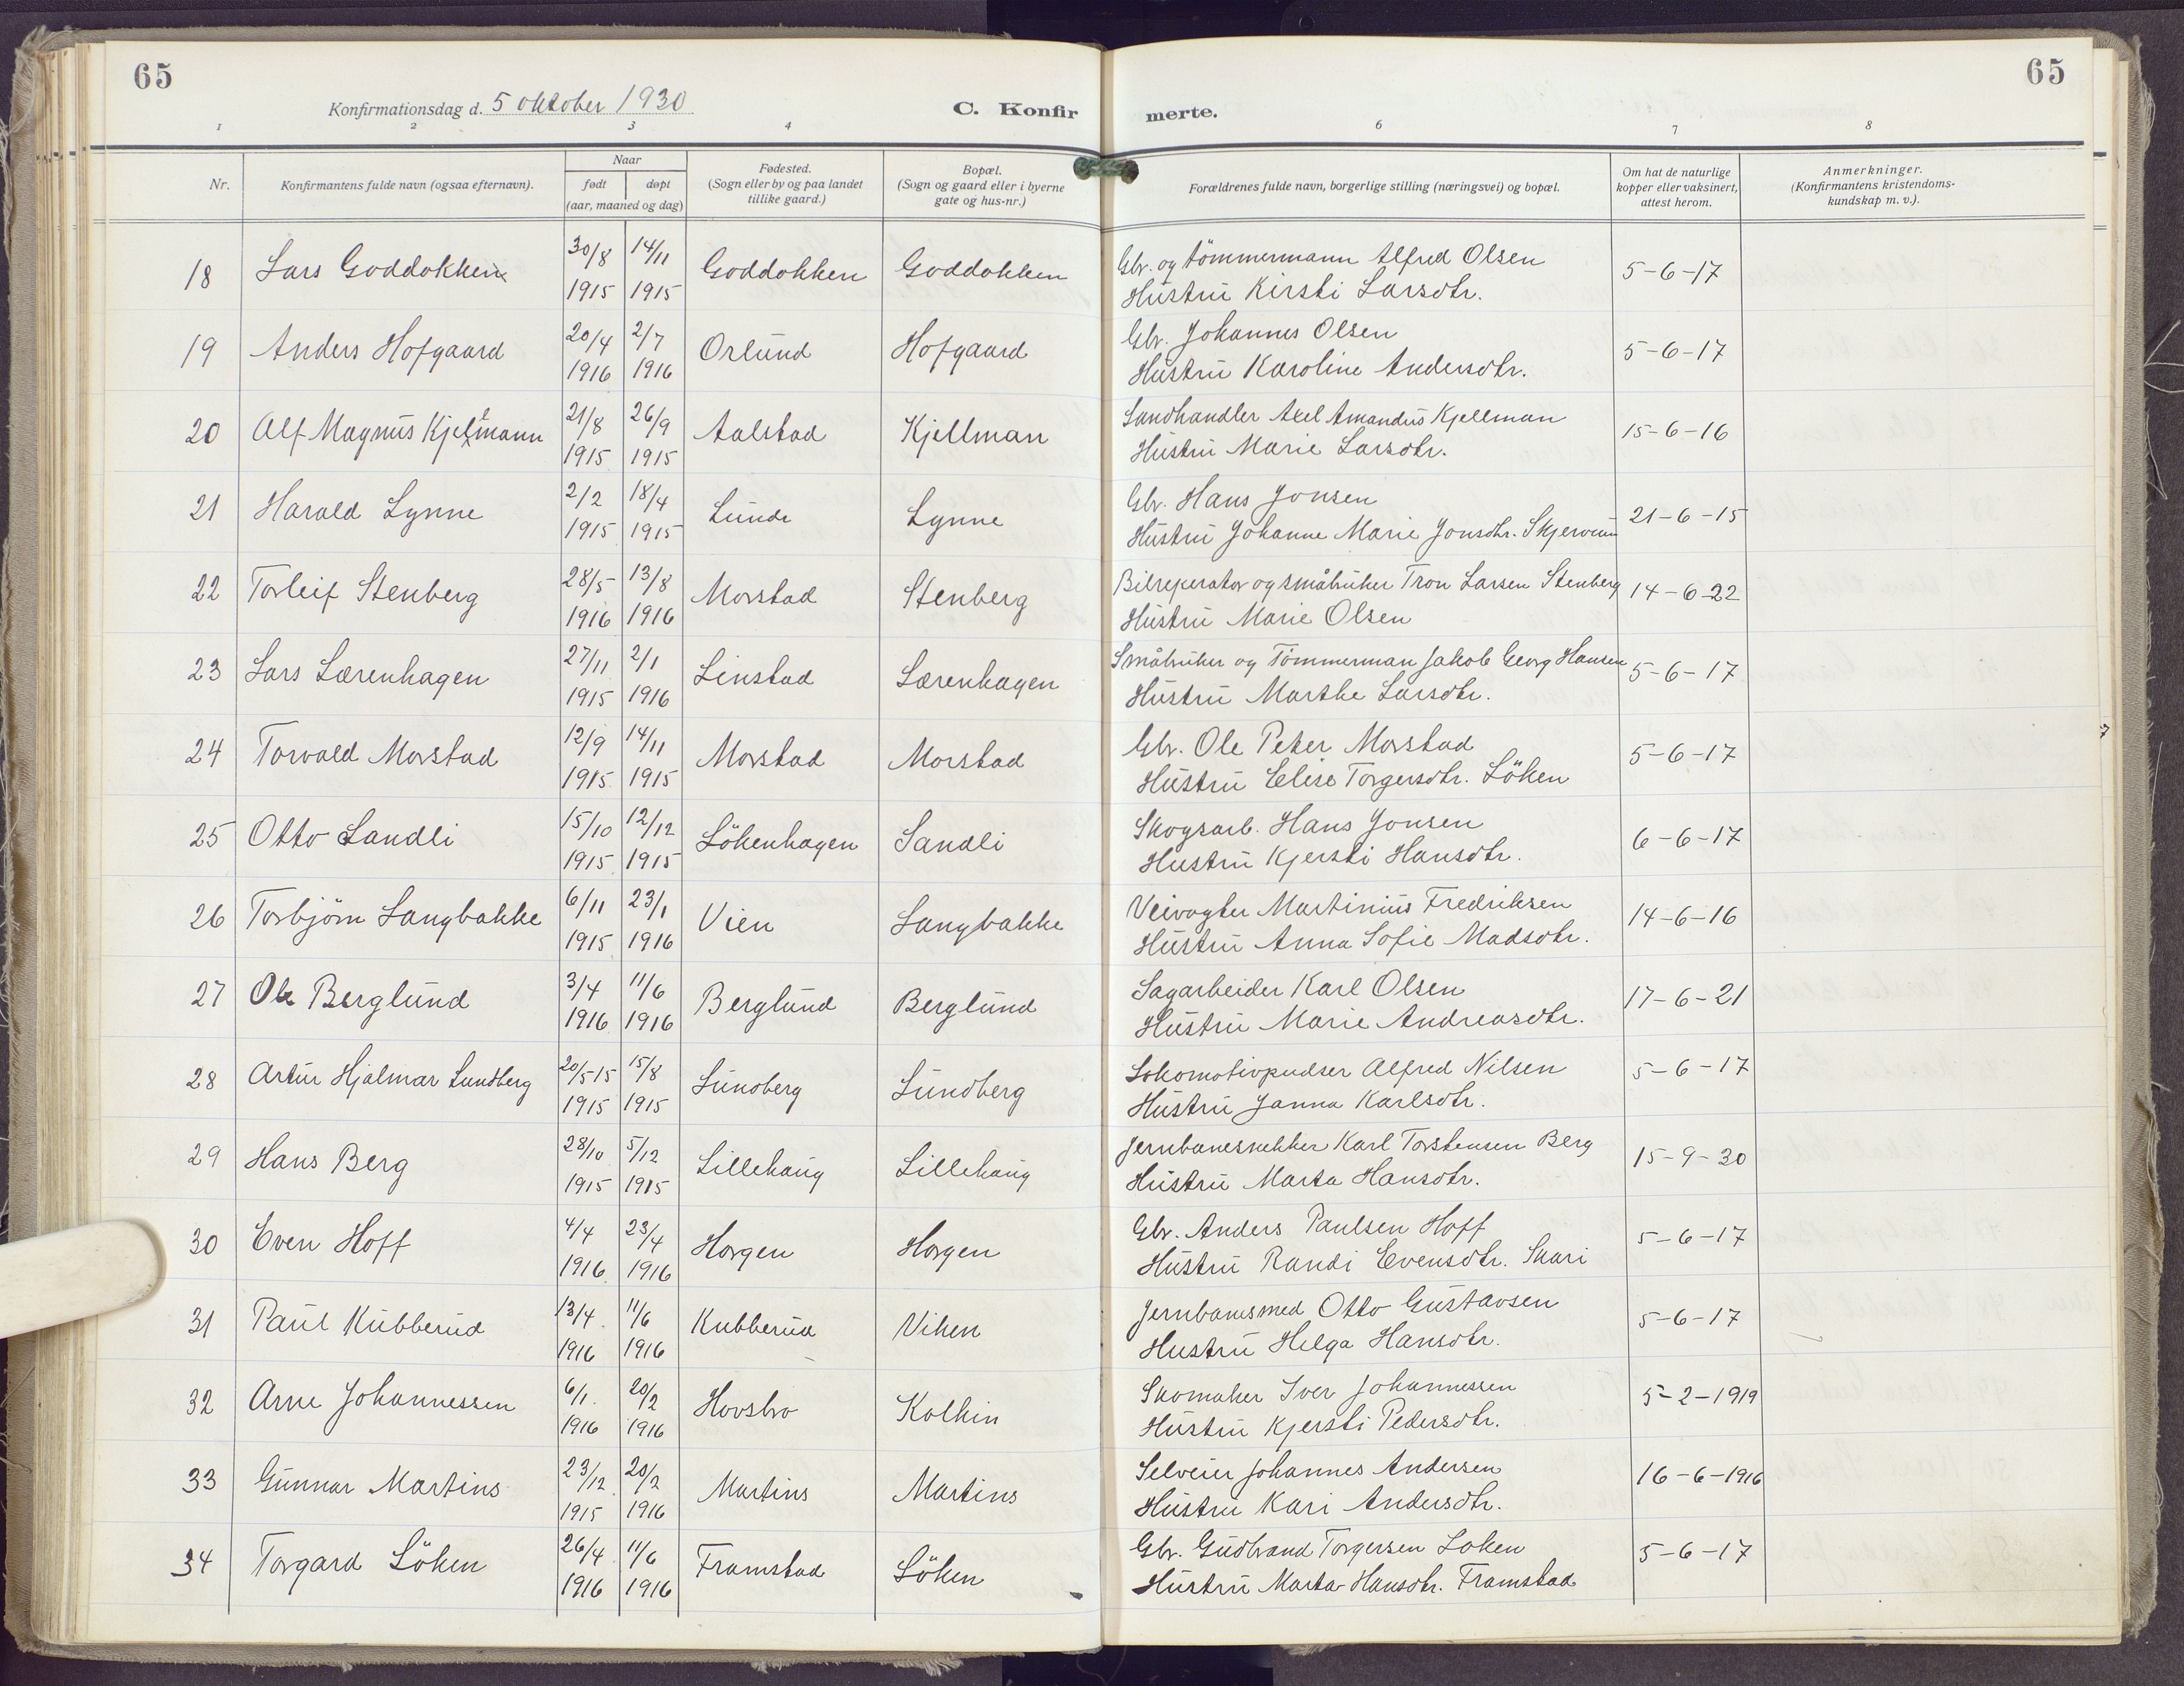 65
65
Konfirmationsdag d. 5 oktober 1930
C. Konfirmerte.
1 2 3 4 6 7 8
Nr.
Konfirmantens fulde navn (ogsaa efternavn).
Naar
født døpt
(aar, maaned og dag)
Fødested.
(Sogn eller by og paa landet
tillike gaard.)
Bopæl.
(Sogn og gaard eller i byerne
gate og hus-nr.)
Forældrenes fulde navn, borgerlige stilling (næringsvei) og bopæl.
Om hat de naturlige
kopper eller vaksinert,
attest herom.
Anmerkninger.
(Konfirmantens kristendoms-
kundskap m. v.).
18 Lars Goddokken 30/8 1915 14/11 1915 Goddokken Goddokken Gbr. og tömmermann Alfred Olsen 5-6-17
Hustru Kirsti Larsdtr.
19 Anders Hofgaard 20/4 1916 2/7 1916 Orlund Hofgaard Gbr. Johannes Olsen 5-6-17
Hustru Karoline Andersdtr.
20 Alf Magnus Kjellmann 21/8 1915 26/9 1915 Aalstad Kjellman Landhandler Axel Amandus Kjellman 15-6-16
Hustru Marie Larsdtr.
21 Harald Lynne 2/2 1915 18/4 1915 Lunde Lynne Gbr. Hans Jonsen 21-6-15
Hustru Johanne Marie Jonsdtr. Skjervum
22 Torleif Stenberg 28/5 1916 13/8 1916 Morstad Stenberg Bilreperatør og småbruker Tron Larsen Stenberg 14-6-22
Hustru Marie Olsen
23 Lars Lærenhagen 27/11 1915 2/1 1916 Linstad Lærenhagen Småbruker og Tömmerman Jakob Georg Hansen 5-6-17
Hustru Marthe Larsdtr.
24 Torvald Morstad 12/9 1915 14/11 1915 Morstad Morstad Gbr. Ole Peter Morstad 5-6-17
Hustru Elise Torgersdtr. Löken
25 Otto Sandli 15/10 1915 12/12 1915 Lökenhagen Sandli Skogsarb. Hans Jonsen 6-6-17
Hustru Kjersti Hansdtr.
26 Torbjörn Langbakke 6/11 1915 23/1 1916 Vien Langbakke Veivogter Martinius Fredriksen 14-6-16
Hustru Anna Sofie Madsdtr.
27 Ole Berglund 3/4 1916 11/6 1916 Berglund Berglund Sagarbeider Karl Olsen 17-6-21
Hustru Marie Andreasdtr.
28 Artur Hjalmar Lundberg 20/5 15 1915 15/8 1915 Lundberg Lundberg Lokomotivpudser Alfred Nilsen 5-6-17
Hustru Janna Karlsdtr.
29 Hans Berg 28/10 1915 5/12 1915 Lillehaug Lillehaug Jernbanesnekker Karl Torstensen Berg 15-9-30
Hustru Marta Hansdtr.
30 Even Hoff 4/4 1916 23/4 1916 Horgen Horgen Gbr. Anders Paulsen Hoff 5-6-17
Hustru Randi Evensdtr. Skari
31 Paul Kubberud 13/4 1916 11/6 1916 Kubberud Viken Jernbanesmed Otto Gustavsen 5-6-17
Hustru Helga Hansdtr.
32 Arne Johannessen 6/1 1916 20/2 1916 Hovsbro Kolkin Skomaker Iver Johannessen 5-2-1919
Hustru Kjersti Pedersdtr.
33 Gunnar Martins 23/12 1915 20/2 1916 Martins Martins Selveier Johannes Andersen 16-6-1916
Hustru Kari Andersdtr.
34 Torgard Löken 26/4 1916 11/6 1916 Framstad Löken Gbr. Gudbrand Torgersen Loken 5-6-17
Hustru Marta Hansdtr. Framstad